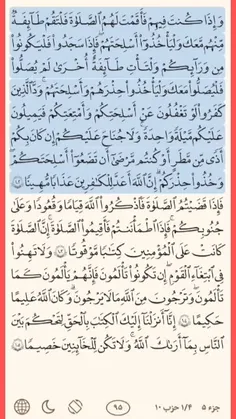 وَإِذَا كُنتَ فِيهِمْ فَأَقَمْتَ لَهُمُ الصَّلَوٰةَ فَلْتَقُمْ طَآئِفَةٌ
مِّنْهُم مَّعَكَ وَلْيَأْخُذُوٓا۟ أَسْلِحَتَهُمْ فَإِذَا سَجَدُوا۟ فَلْيَكُونُوا۟
مِن وَرَآئِكُمْ وَلْتَأْتِ طَآئِفَةٌ أُخْرَىٰ لَمْ يُصَلُّوا۟
فَلْيُصَلُّوا۟ مَعَكَ وَلْيَأْخُذُوا۟ حِذْرَهُمْ وَأَسْلِحَتَهُمْ ۗ وَدَّ الَّذِينَ
كَفَرُوا۟ لَوْ تَغْفُلُونَ عَنْ أَسْلِحَتِكُمْ وَأَمْتِعَتِكُمْ فَيَمِيلُونَ
عَلَيْكُم مَّيْلَةً وَٰحِدَةً ۚ وَلَا جُنَاحَ عَلَيْكُمْ إِن كَانَ بِكُمْ
أَذًى مِّن مَّطَرٍ أَوْ كُنتُم مَّرْضَىٰٓ أَن تَضَعُوٓا۟ أَسْلِحَتَكُمْ
وَخُذُوا۟ حِذْرَكُمْ ۗ إِنَّ اللَّهَ أَعَدَّ لِلْكَٰفِرِينَ عَذَابًا مُّهِينًا ١٠٢
فَإِذَا قَضَيْتُمُ الصَّلَوٰةَ فَاذْكُرُوا۟ اللَّهَ قِيَٰمًا وَقُعُودًا وَعَلَىٰ
جُنُوبِكُمْ ۚ فَإِذَا اطْمَأْنَنتُمْ فَأَقِيمُوا۟ الصَّلَوٰةَ ۚ إِنَّ الصَّلَوٰةَ
كَانَتْ عَلَى الْمُؤْمِنِينَ كِتَٰبًا مَّوْقُوتًا ١٠٣ وَلَا تَهِنُوا۟
فِى ابْتِغَآءِ الْقَوْمِ ۖ إِن تَكُونُوا۟ تَأْلَمُونَ فَإِنَّهُمْ يَأْلَمُونَ كَمَا
تَأْلَمُونَ ۖ وَتَرْجُونَ مِنَ اللَّهِ مَا لَا يَرْجُونَ ۗ وَكَانَ اللَّهُ عَلِيمًا
حَكِيمًا ١٠٤ إِنَّآ أَنزَلْنَآ إِلَيْكَ الْكِتَٰبَ بِالْحَقِّ لِتَحْكُمَ بَيْنَ
النَّاسِ بِمَآ أَرَىٰكَ اللَّهُ ۚ وَلَا تَكُن لِّلْخَآئِنِينَ خَصِيمًا ١٠٥
جزء ٥ ١/٤ حزب ١٠
٩٥